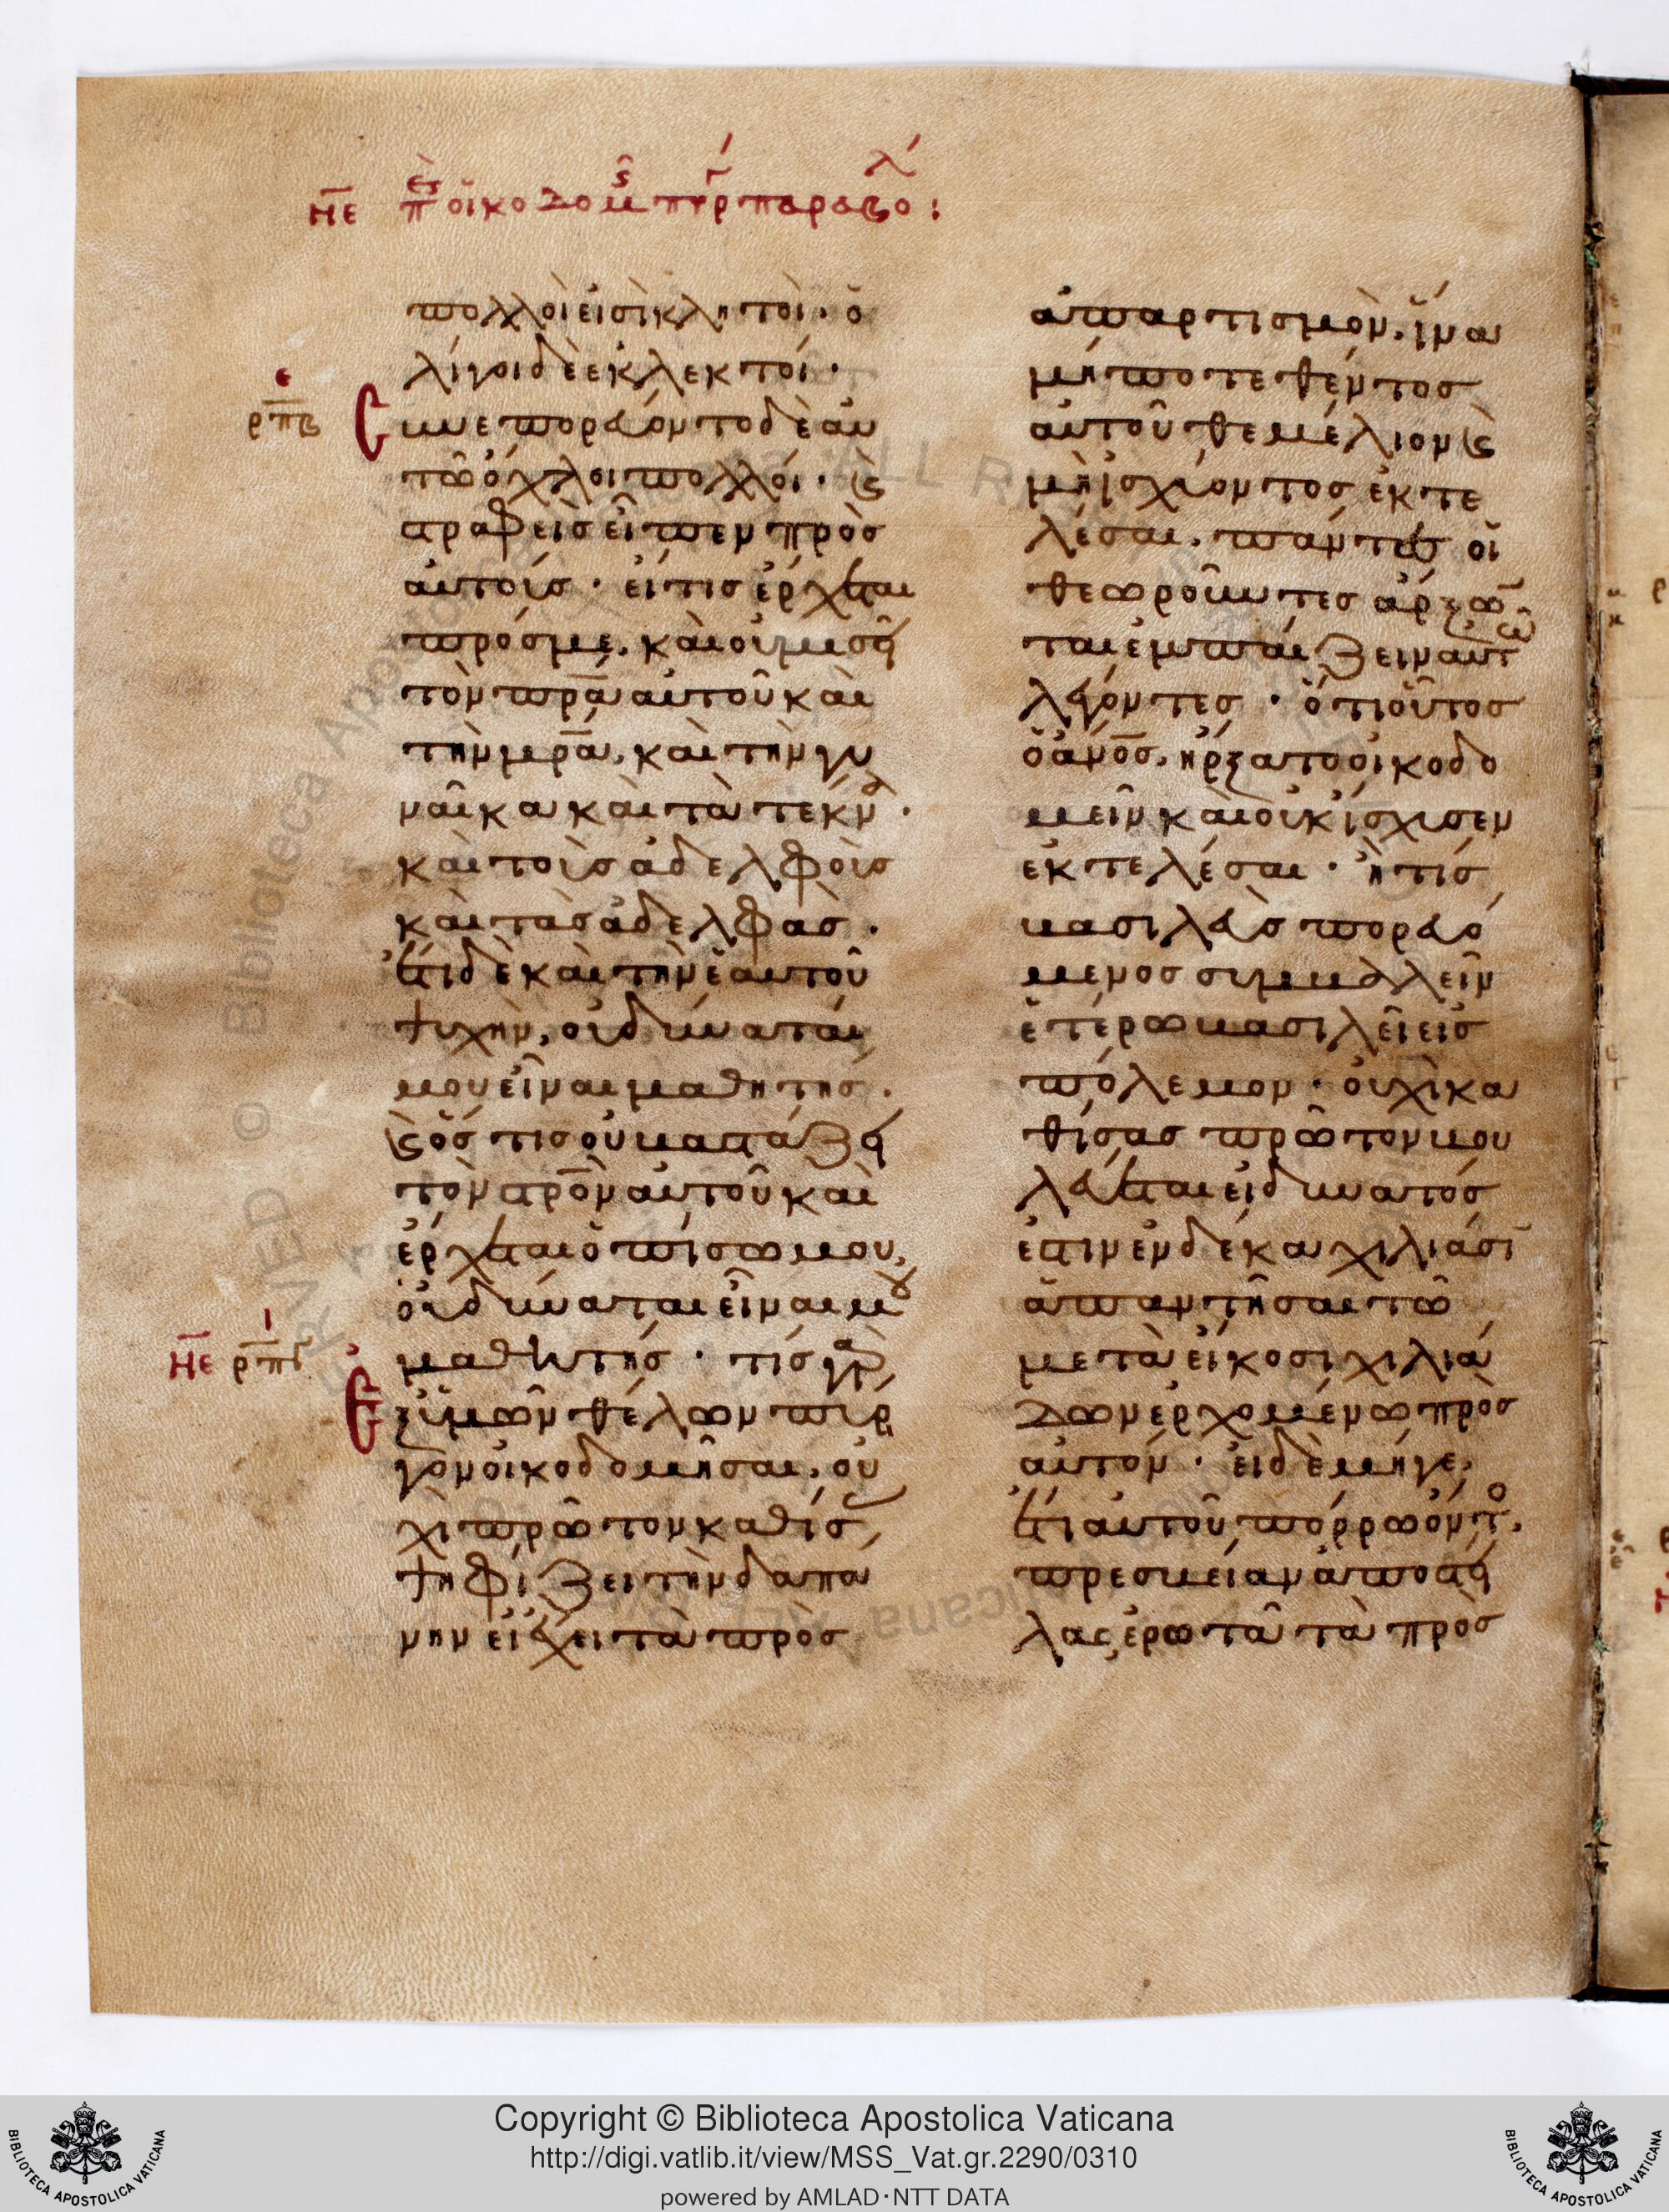 πολλοὶ εἰσὶ κλητοὶ· ὀ
λίγοι δὲ ἐκλεκτοί·
ε
ρπβ
Συνεπορεύοντο δὲ αὐ
τῶ ὄχλοι πολλοί· κ(αὶ)
στραφεὶς εἶπεν πρὸς
αὐτούς· εἴ τις ἔρχεται
πρός με, καὶ οὐ μισεῖ
τὸν πρ̅α αὐτοῦ καὶ
τὴν μρ̅α, καὶ τὴν γυ
ναῖκα καὶ τὰ τέκν(α)·
καὶ τοὺς ἀδελφοὺς
καὶ τὰς ἀδελφὰς·
ἔτι δὲ καὶ τὴν ἑαυτοῦ
ψυχήν, οὐ δύναταί
μου εἶναι μαθητής·
κ(αὶ) ὅς τις οὐ βαστάζει
τὸν στρ̅ον αὐτοῦ καὶ
ἔρχεται ὀπίσω μου,
οὐ δύναται εἶναί μου
ΝΕ ι
ρπγ
μαθητής· τίς γὰρ
ἐξ ὑμῶν θέλων πύρ
γον οἰκοδομῆσαι, οὐ
χὶ πρῶτον καθίσας
ψηφίζει τὴν δαπά
νην εἰ ἔχει τὰ πρὸς
ἀπαρτισμόν, ἵνα
μήποτε θέντος
αὐτοῦ θεμέλιον κ(αὶ)
μὴ ἰσχύοντος ἐκτε
λέσαι, πάντες οἱ
θεωροῦντες ἄρξων
ται ἐμπαίζειν αὐτῶ
λέγοντες· ὅτι οὗτος
ὁ ἄνο̅ς, ἤρξατο οἰκοδο
μεῖν καὶ οὐκ ἴσχυσεν
ἐκτελέσαι· ἢ τίς
βασιλεὺς πορευό
μενος συμβαλεῖν
ἑτέρω βασιλεῖ εἰς
πόλεμον· οὐχὶ κα
θίσας πρῶτον βου
λεύεται εἰ δυνατός
ἐστιν ἐν δέκα χιλιάσι
ἀπαντῆσαι τῶ
μετὰ εἴκοσι χιλιά
δων ἐρχομένω πρὸς
αὐτόν· εἰ δὲ μήγε,
ἔτι αὐτοῦ πόρρω ὄντο(ς),
πρεσβείαν ἀποστεί
λας ἐρωτᾶ τὰ πρὸς
Copyright © Biblioteca Apostolica Vaticana
http://digi.vatlib.it/view/MSS_Vat.gr.2290/0310
powered by AMLAD·NTT DATA
BIBLIOTECA APOSTOLICA VATICANA
BIBLIOTECA APOSTOLICA VATICANA